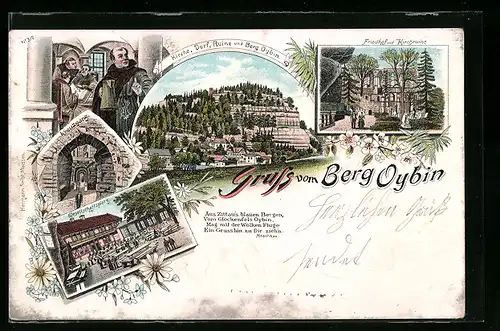 Kirche, Dorf, Ruine und Berg Oybin
Friedhof und Kirchruine
Gruß vom Berg Oybin
Aus Zittaus blauen Bergen,
Vom Glockenfels Oybin,
Mag mit der Wolken Fluge
Ein Gruss hin zu Dir ziehn.
Herzlichen Gruß
sendet